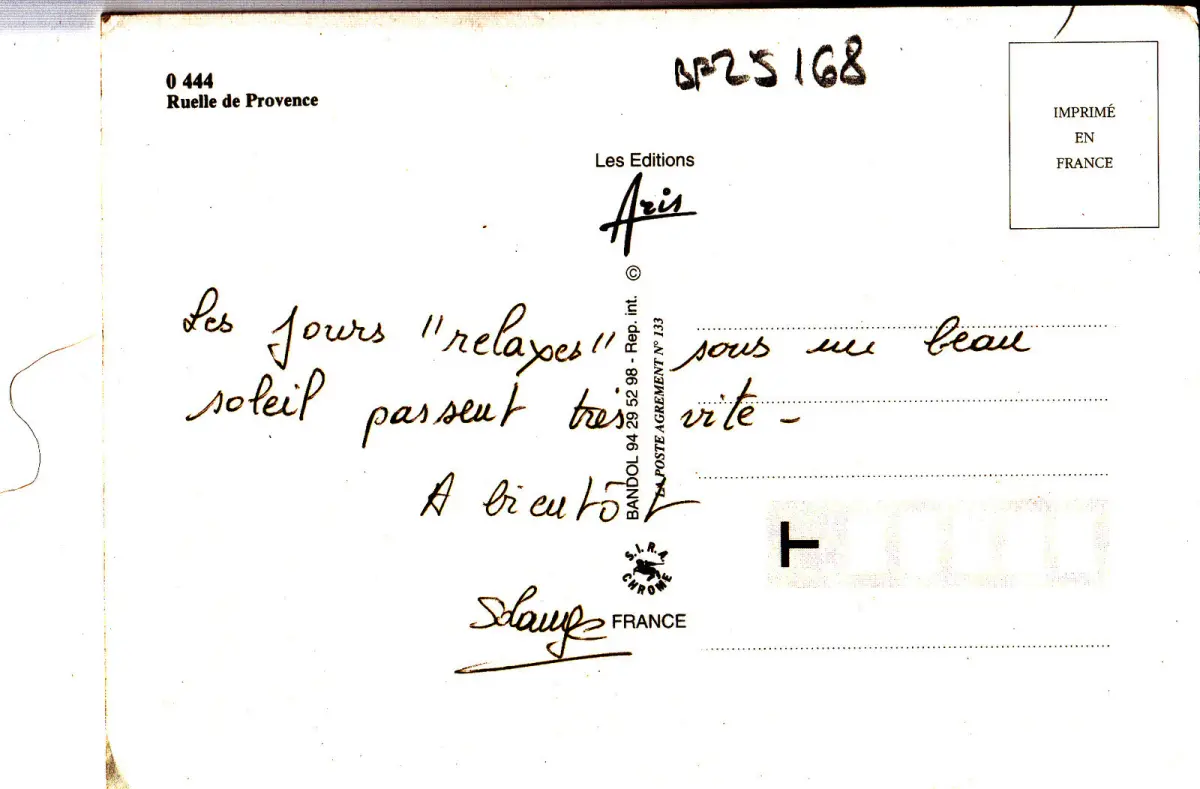 0 444
Ruelle de Provence
BF25168
IMPRIMÉ
EN
FRANCE
Les Editions
Aris
BANDOL 94 29 52 98 - Rep. int. ©
LA POSTE AGREMENT N° 133
Les jours "relaxes" sous un beau
soleil passent très vite -
A bientôt
Solange
S.I.R.A.
CHROME
FRANCE
T